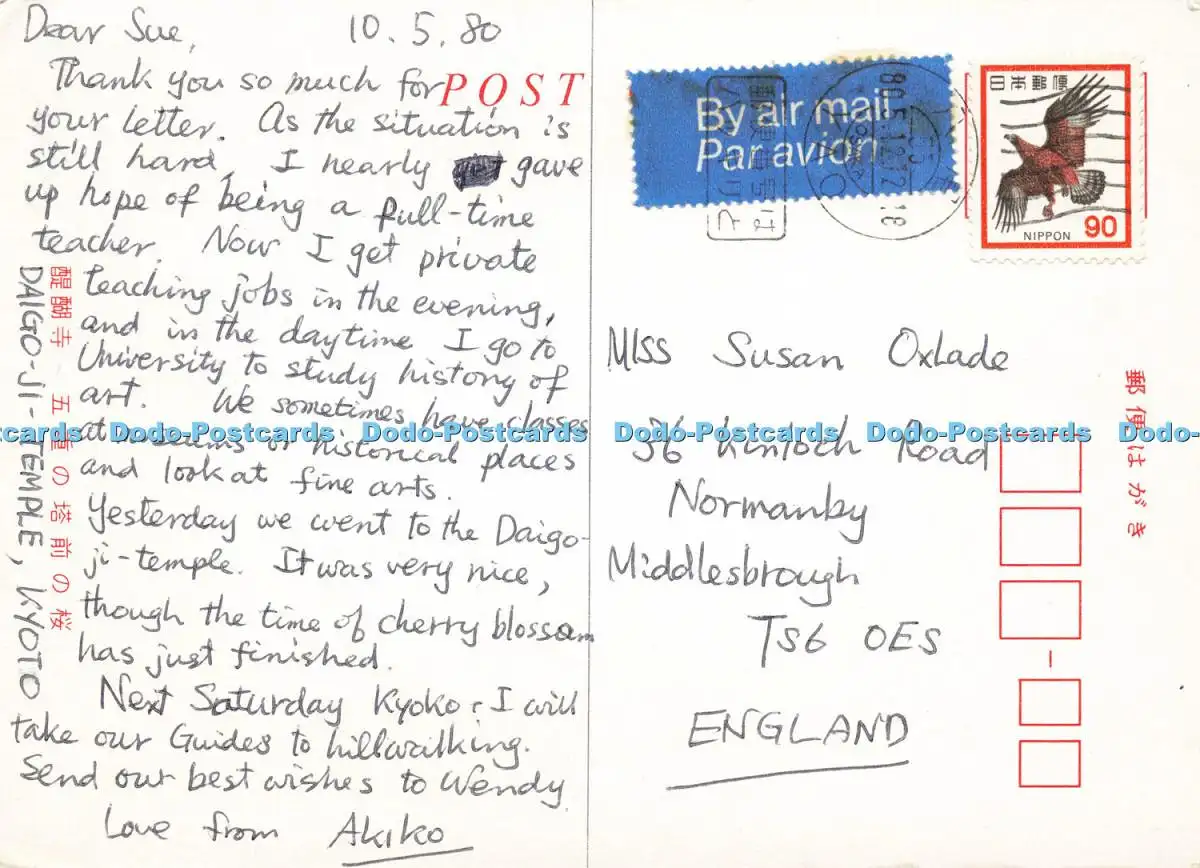 Dear Sue, 10.5.80
Thank you so much for
POST
your letter. As the situation is
still hard, I nearly gave
up hope of being a full-time
teacher. Now I get private
teaching jobs in the evening,
and in the daytime I go to
University to study history of
art. We sometimes have classes
at of historical places
and look at fine arts.
Yesterday we went to the Daigo-
ji-temple. It was very nice,
though the time of cherry blossom
has just finished.
Next Saturday Kyoko & I will
take our Guides to hillwalking.
Send our best wishes to Wendy
Love from Akiko
醍醐寺 五重の塔前の桜
DAIGO-JI-TEMPLE, KYOTO
By air mail
Par avion
日本郵便
NIPPON 90
Miss Susan Oxlade
36 Kinloch Road
Normanby
Middlesbrough
TS6 0ES
ENGLAND
郵便はがき
Dodo-Postcards Dodo-Postcards Dodo-Postcards Dodo-Postcards